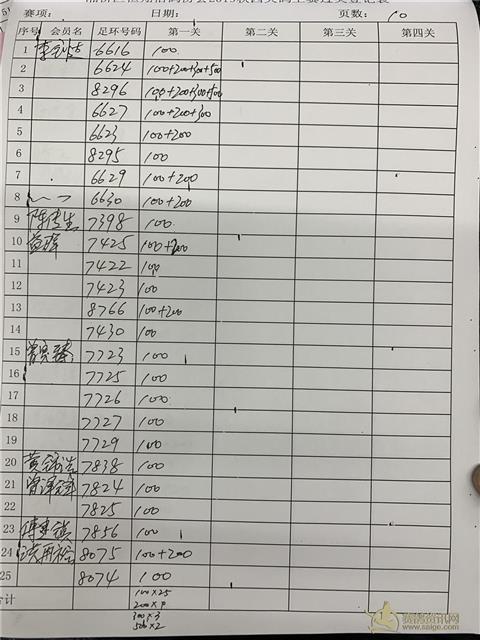 赛项： 日期： 页数： 10
序号 会员名 足环号码 第一关 第二关 第三关 第四关
1 6616 100
2 6624 100+200+300+500
3 8296 100+200+300+500
4 6627 100+200+300
5 6623 100+200
6 8295 100
7 6629 100+200
8 6630 100+200
9 7398 100
10 7425 100+200
11 7422 100
12 7423 100
13 8766 100+200
14 7430 100
15 7723 100
16 7725 100
17 7726 100
18 7727 100
19 7729 100
20 7838 100
21 7824 100
22 7825 100
23 7856 100
24 8075 100+200
25 8074 100
合计 100×25
200×9
300×3
500×2
赛鸽资讯网
www.saige.com